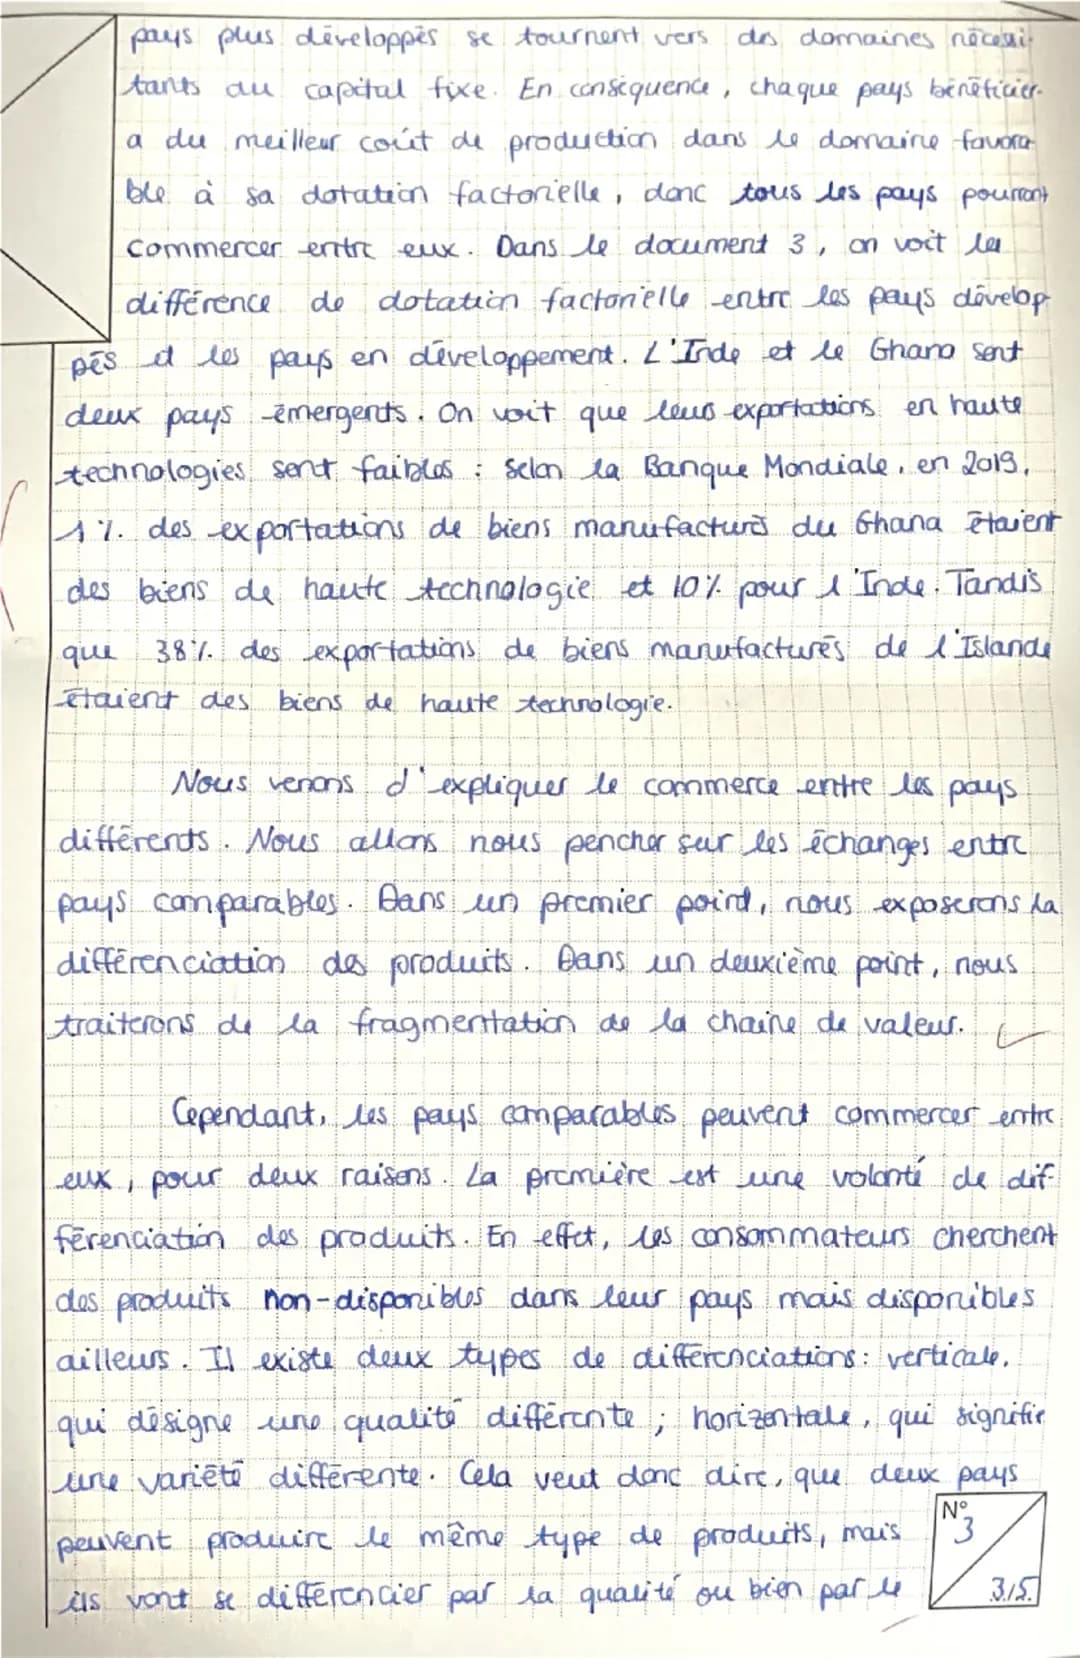 pays plus développés se tournent vers des domaines nécessi-
tants du capital fixe. En conséquence, chaque pays bénéficier-
a du meilleur coût de production dans le domaine favora-
ble à sa dotation factorielle, donc tous les pays pourront
commercer entre eux. Dans le document 3, on voit la
différence de dotation factorielle entre les pays dévelop-
pés et les pays en développement. L'Inde et le Ghana sont
deux pays émergents. On voit que leurs exportations en haute
technologies sont faibles : selon la Banque Mondiale, en 2019,
1%. des exportations de biens manufacturés du Ghana étaient
des biens de haute technologie et 10% pour l'Inde. Tandis
que 38%. des exportations de biens manufacturés de l'Islande
étaient des biens de haute technologie.
Nous venons d'expliquer le commerce entre les pays
différents. Nous allons nous pencher sur les échanges entre
pays comparables. Dans un premier point, nous exposerons la
différenciation des produits. Dans un deuxième point, nous
traiterons de la fragmentation de la chaine de valeur.
Cependant, les pays comparables peuvent commercer entre
eux, pour deux raisons. La première est une volonté de dif-
férenciation des produits. En effet, les consommateurs cherchent
des produits non-disponibles dans leur pays mais disponibles
ailleurs. Il existe deux types de différenciations : verticale,
qui désigne une qualité différente ; horizontale, qui signifie
une variété différente. Cela veut donc dire, que deux pays
peuvent produire le même type de produits, mais
ils vont se différencier par la qualité ou bien par le
N°
3
3/5